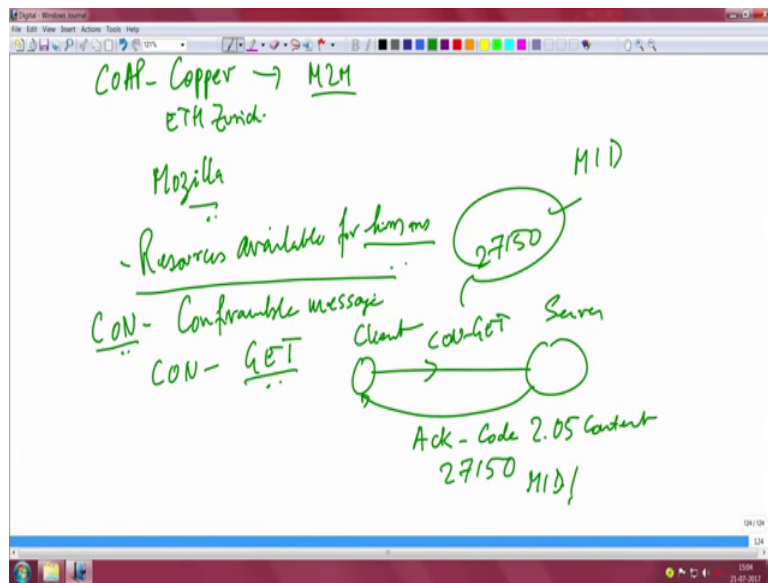 Digital - Windows Journal
File Edit View Insert Actions Tools Help
121%
B
COAP - Copper → M2M
ETH Zurich.
Mozilla
MID
- Resources available for humans
27150
CON - Confirmable message
Client CON-GET Server
CON - GET
Ack - Code 2.05 Content
27150 MID/
124 / 124
124
15:04
21-07-2017